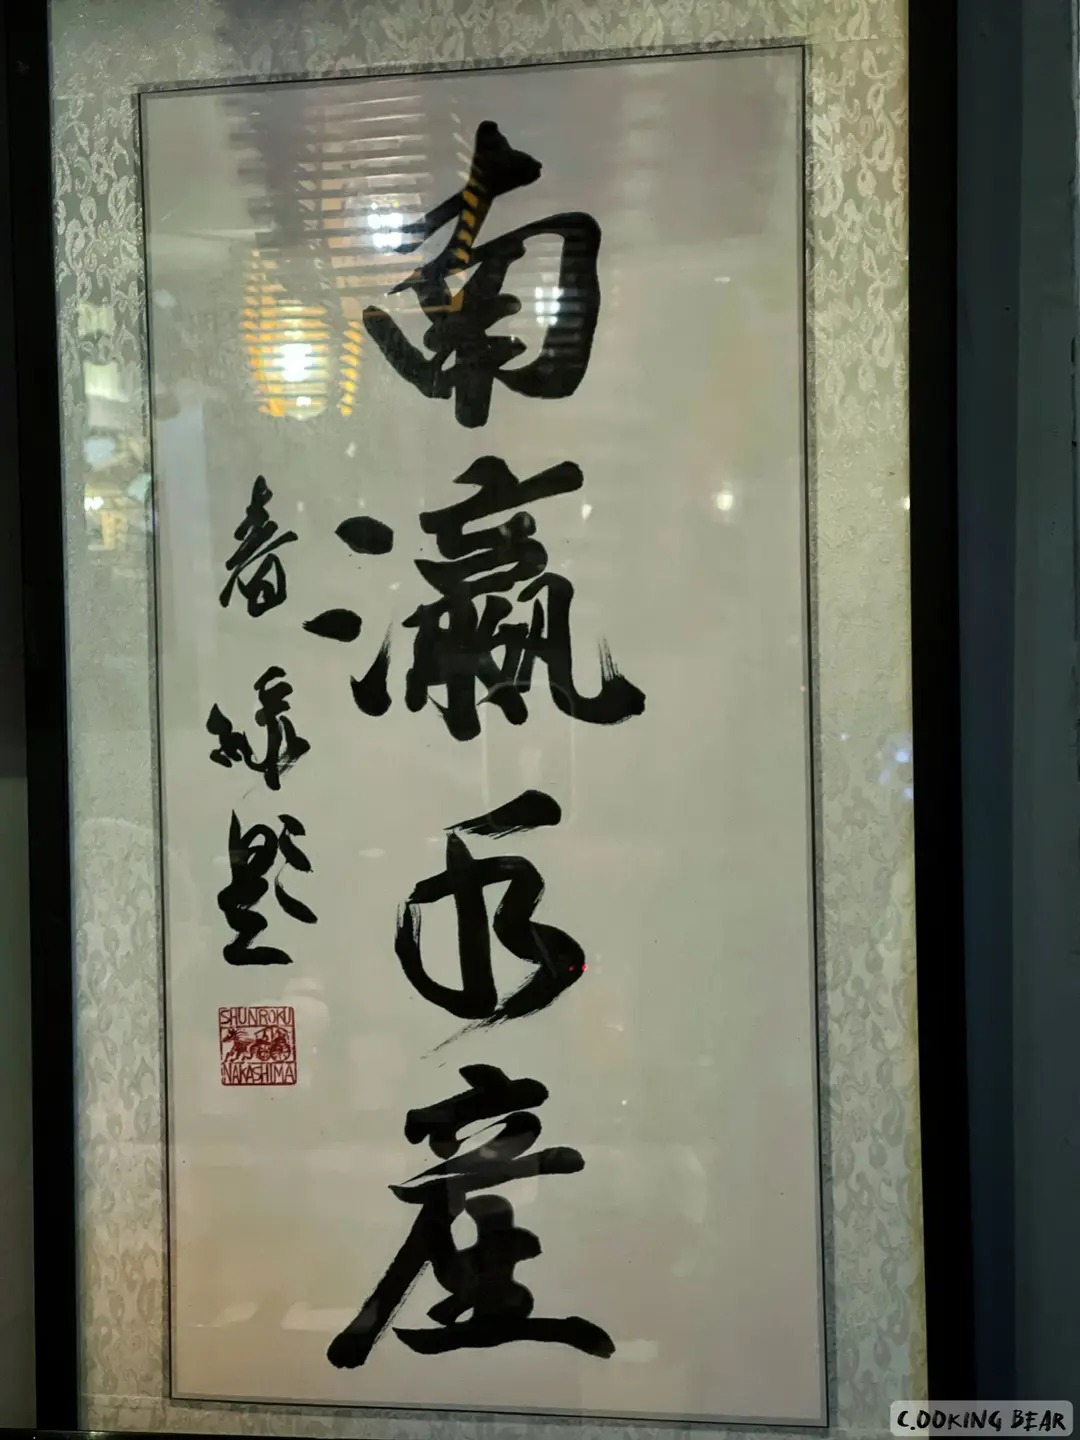 南瀛水産
春緑題
SHUNROKU
NAKASHIMA
C.OOKING BEAR